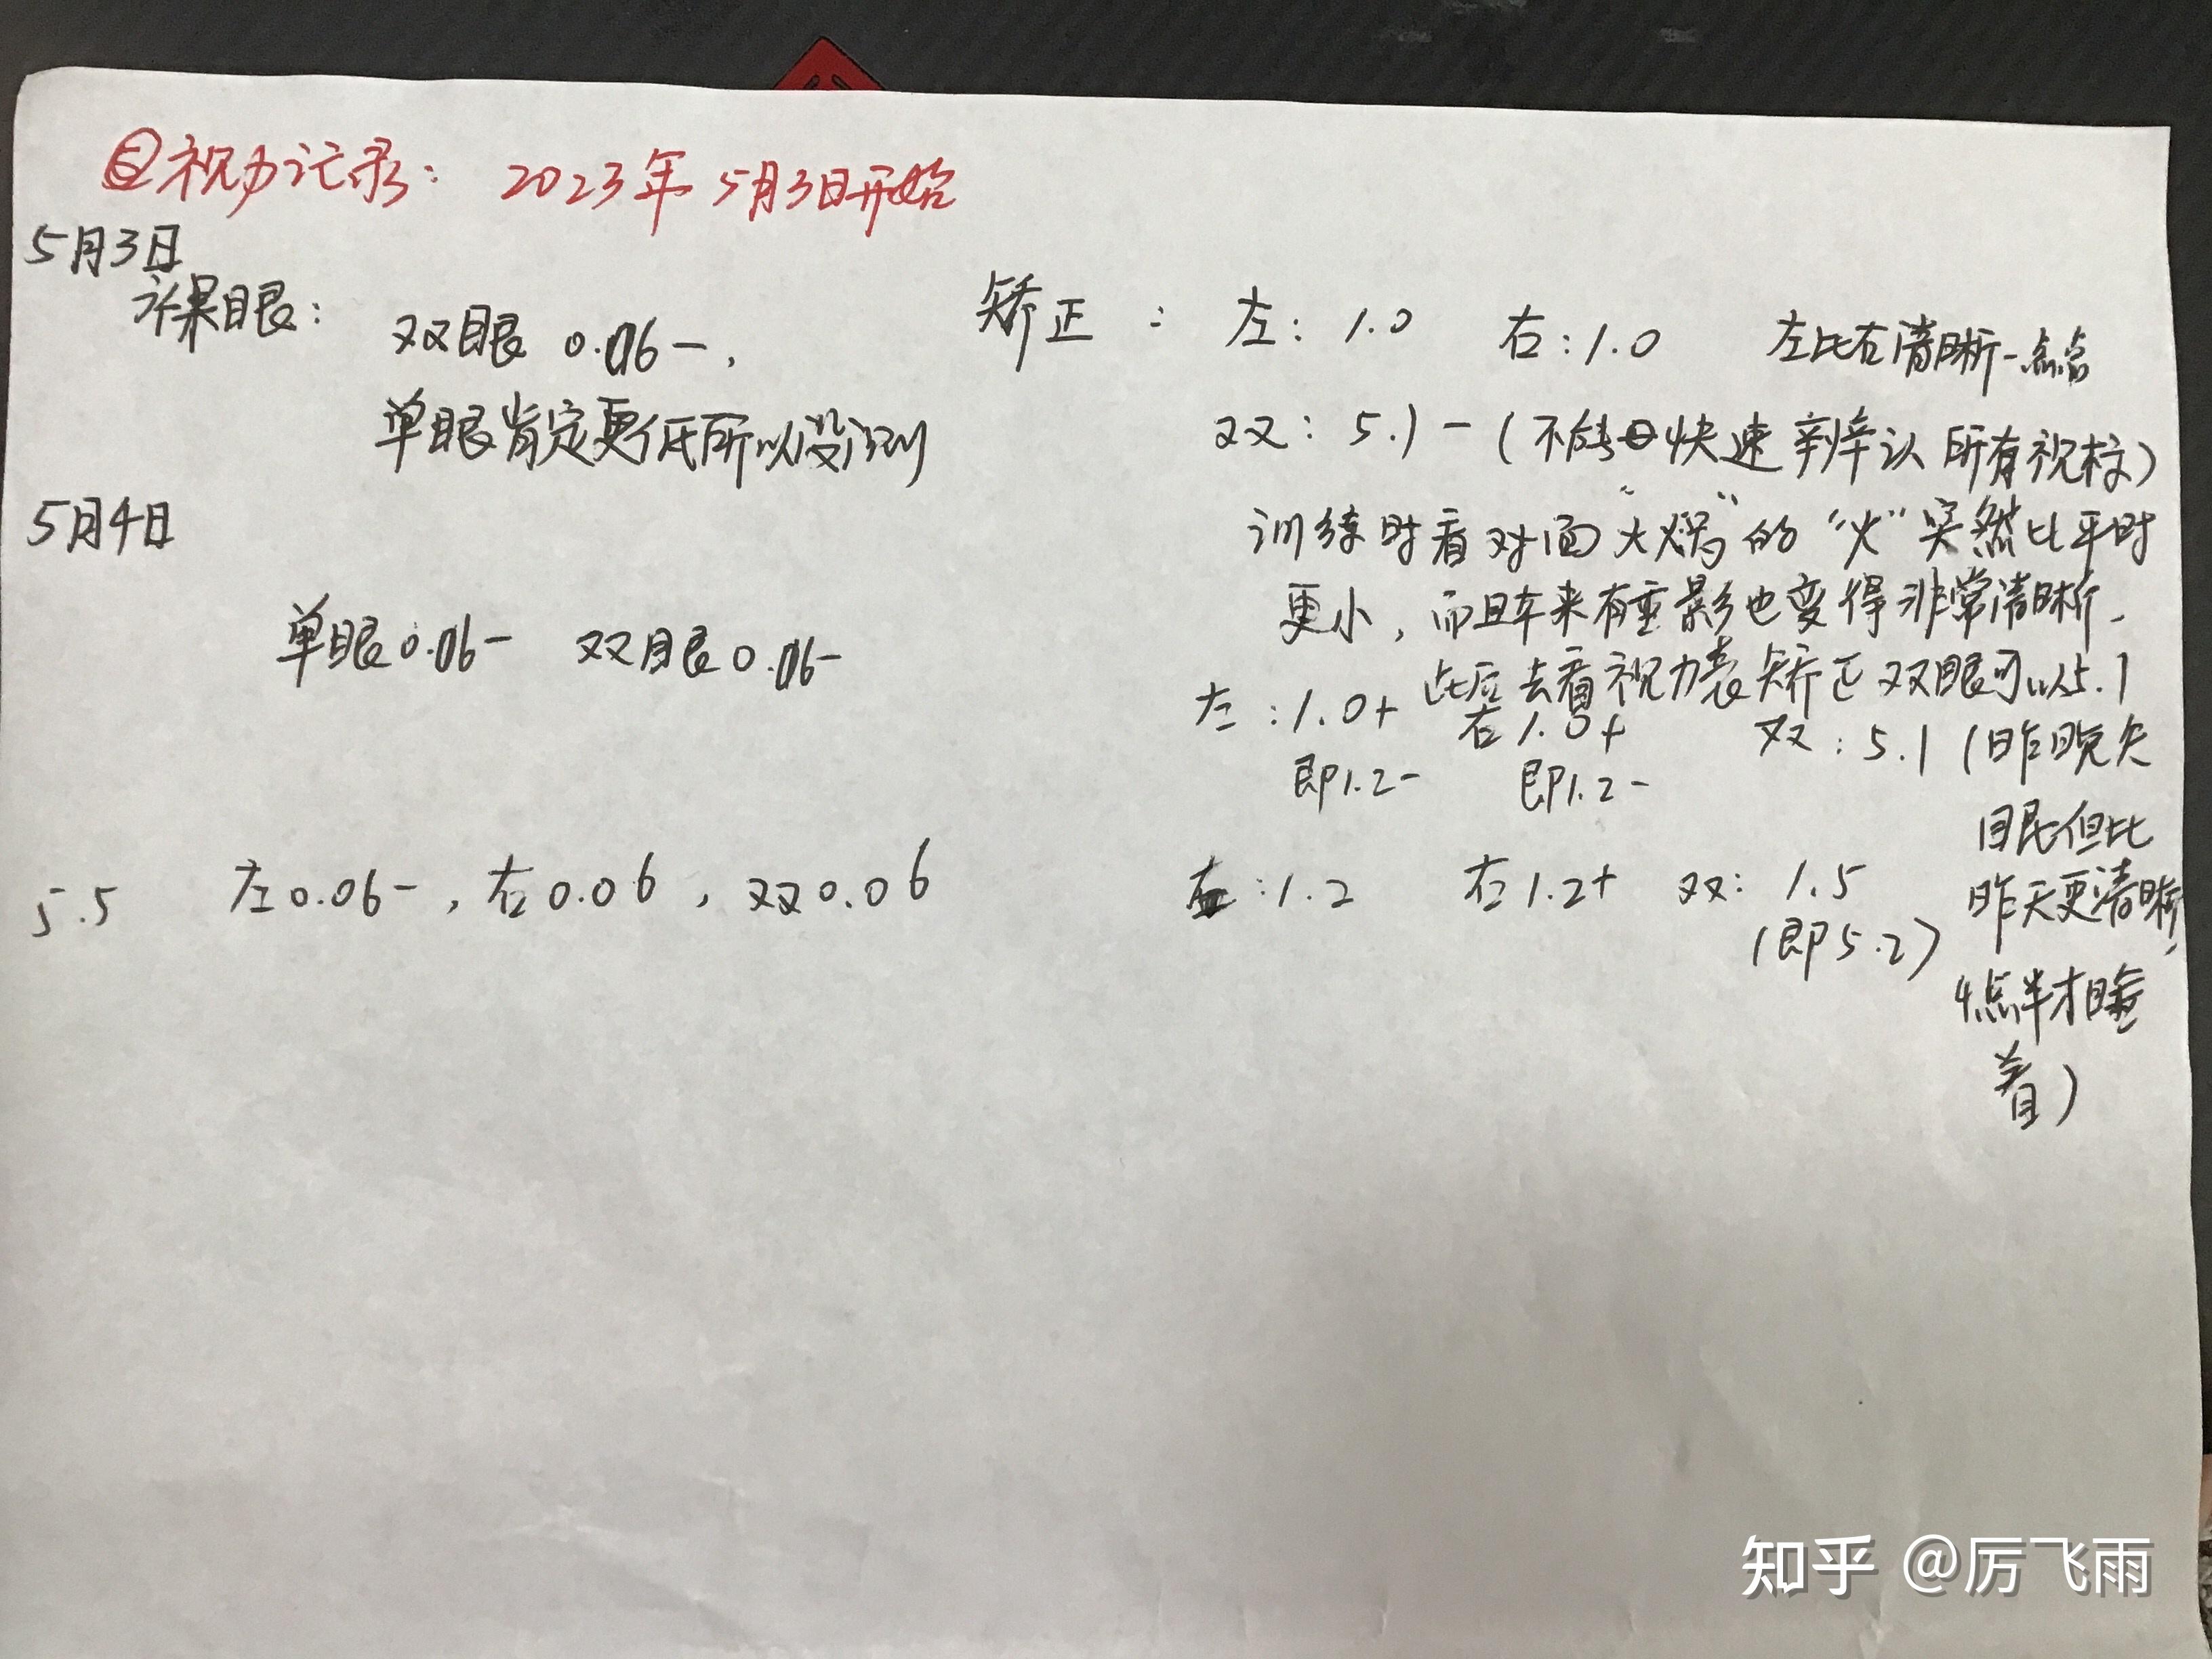 视力记录: 2023年5月3日开始
5月3日
裸眼: 双眼 0.06-,
单眼肯定更低所以没测
矫正: 左: 1.0 右: 1.0 左比右清晰一点点
双: 5.1-(不能快速辨认所有视标)
5月4日
训练时看对面“火锅”的“火”突然比平时
更小,而且本来有重影也变得非常清晰.
此后去看视力表矫正双眼可以5.1
单眼0.06- 双眼0.06-
左:1.0+ 右1.0+ 双:5.1(昨晚失
即1.2- 即1.2-
眠但比
昨天更清晰,
4点半才睡
着)
5.5 左0.06-,右0.06,双0.06
左:1.2 右1.2+ 双: 1.5
(即5.2)
知乎 @厉飞雨